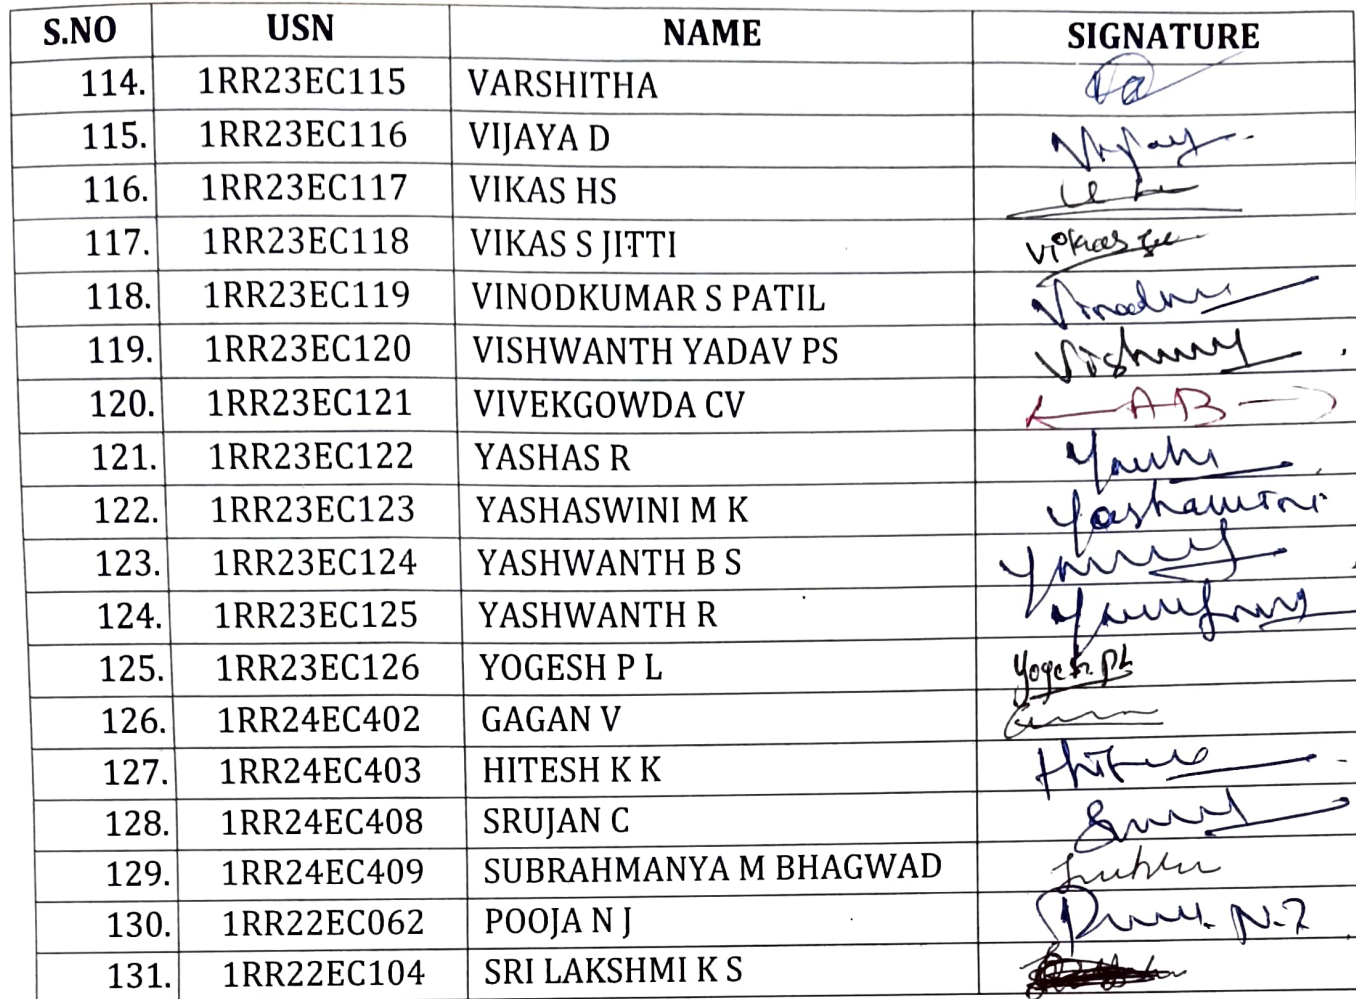 S.NO USN NAME SIGNATURE
114. 1RR23EC115 VARSHITHA
115. 1RR23EC116 VIJAYA D Vijay
116. 1RR23EC117 VIKAS HS
117. 1RR23EC118 VIKAS S JITTI Vikas
118. 1RR23EC119 VINODKUMAR S PATIL
119. 1RR23EC120 VISHWANTH YADAV PS
120. 1RR23EC121 VIVEKGOWDA CV AB
121. 1RR23EC122 YASHAS R
122. 1RR23EC123 YASHASWINI M K
123. 1RR23EC124 YASHWANTH B S
124. 1RR23EC125 YASHWANTH R
125. 1RR23EC126 YOGESH P L Yogesh. PL
126. 1RR24EC402 GAGAN V
127. 1RR24EC403 HITESH K K
128. 1RR24EC408 SRUJAN C
129. 1RR24EC409 SUBRAHMANYA M BHAGWAD
130. 1RR22EC062 POOJA N J
131. 1RR22EC104 SRI LAKSHMI K S